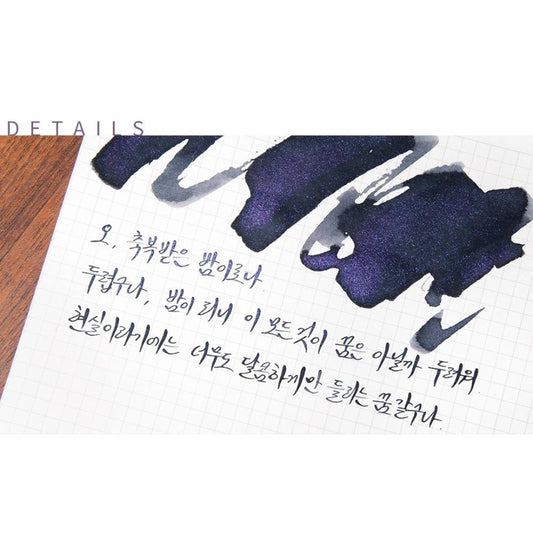 DETAILS
오, 축복받은 밤이로나.
두렵구나, 밤이 되니 이 모든것이 꿈은 아닐까 두려워.
현실이라기에는 너무도 달콤하게만 들리는 꿈같구나.